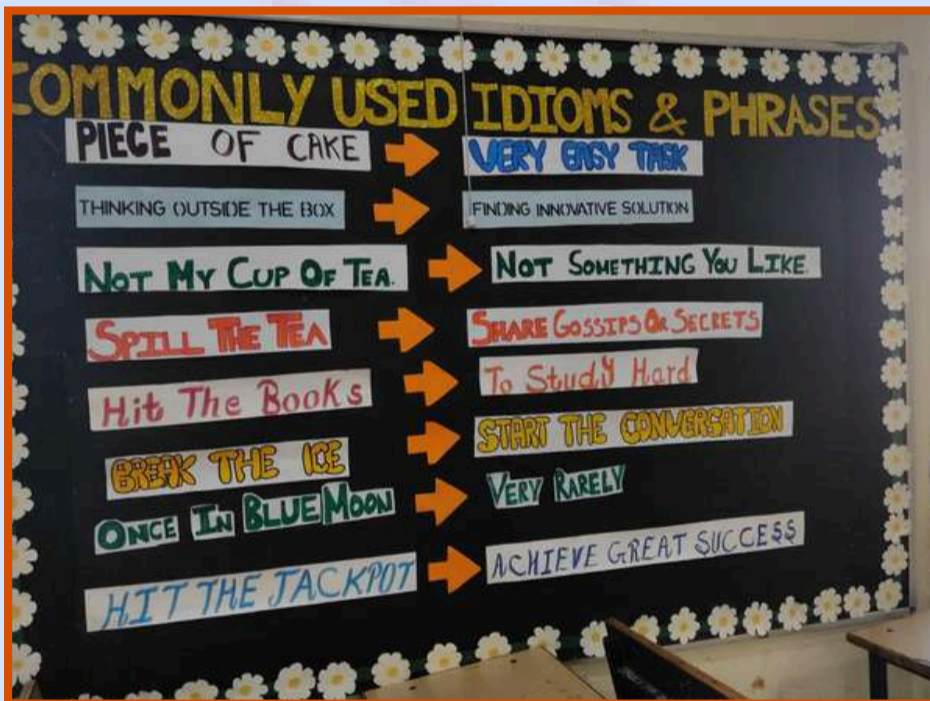 COMMONLY USED IDIOMS & PHRASES
PIECE OF CAKE VERY EASY TASK
THINKING OUTSIDE THE BOX FINDING INNOVATIVE SOLUTION
NOT MY CUP OF TEA. NOT SOMETHING YOU LIKE.
SPILL THE TEA SHARE GOSSIPS OR SECRETS
Hit The Books To Study Hard
BREAK THE ICE START THE CONVERSATION
ONCE IN BLUE MOON VERY RARELY
HIT THE JACKPOT ACHIEVE GREAT SUCCESS